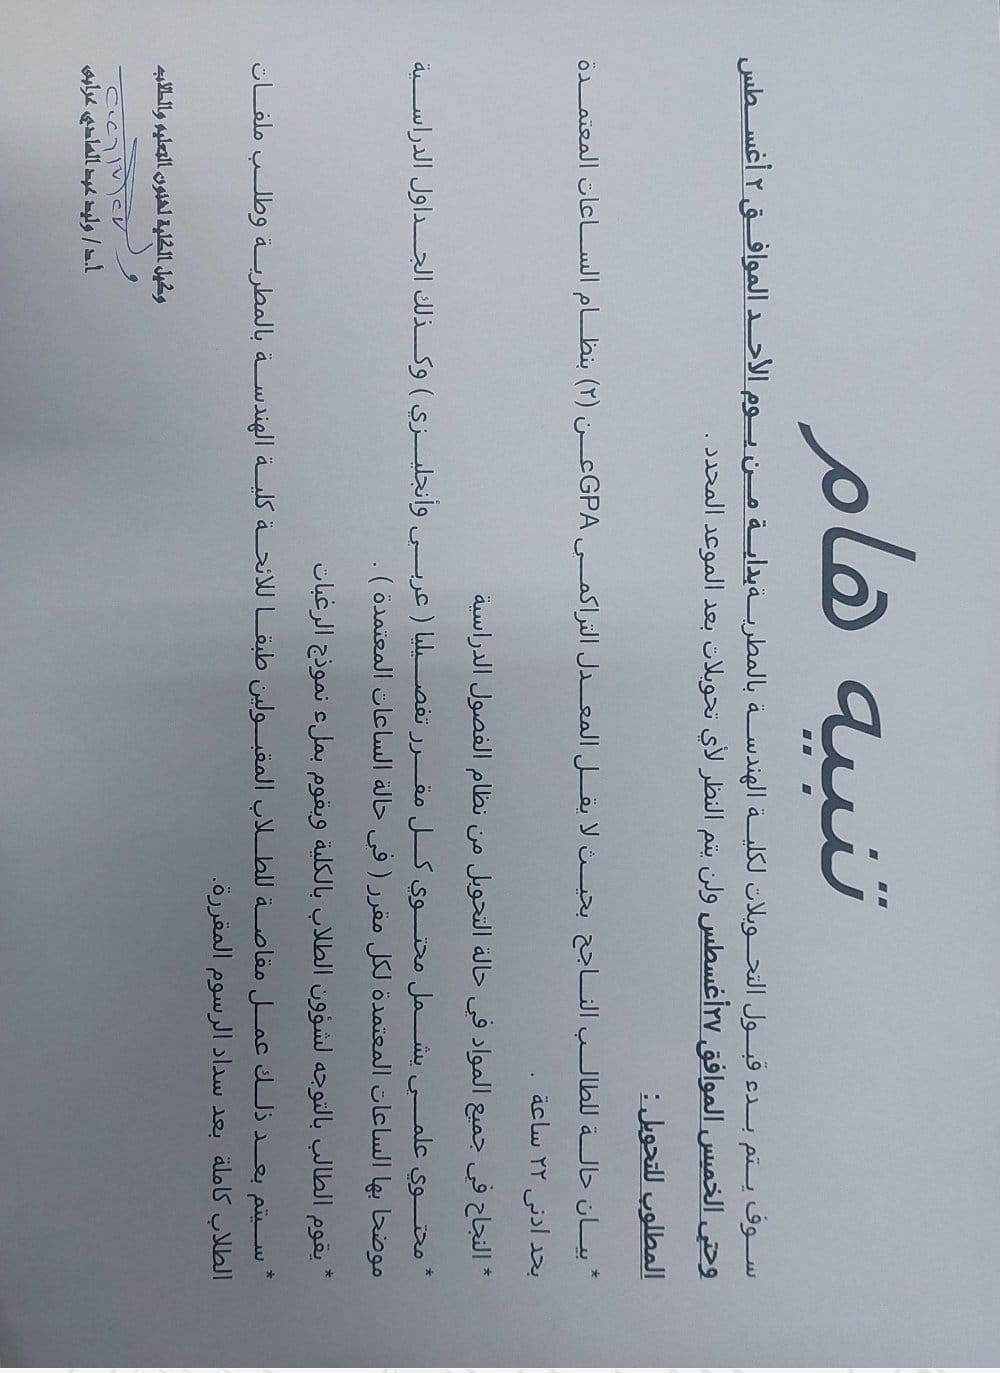 تنبيه هام
سوف يتم بدء قبول التحويلات لكلية الهندسة بالمطرية بداية من يوم الأحد الموافق ٢ أغسطس
وحتي الخميس الموافق ٢٧ أغسطس ولن يتم النظر لأي تحويلات بعد الموعد المحدد .
المطلوب للتحويل :
* بيان حالة للطالب الناجح بحيث لا يقل المعدل التراكمي GPA عن (٢) بنظام الساعات المعتمدة
بحد ادنى ٢٢ ساعة .
* النجاح في جميع المواد في حالة التحويل من نظام الفصول الدراسية
* محتوي علمي يشمل محتوي كل مقرر تفصيليا ( عربي وأنجليزي ) وكذلك الجداول الدراسية
موضحا بها الساعات المعتمدة لكل مقرر ( في حالة الساعات المعتمدة ) .
* يقوم الطالب بالتوجه لشؤون الطلاب بالكلية ويقوم بملء نموذج الرغبات
* سيتم بعد ذلك عمل مقاصة للطلاب المقبولين طبقا للائحة كلية الهندسة بالمطرية وطلب ملفات
الطلاب كاملة بعد سداد الرسوم المقررة.
وكيل الكلية لشئون التعليم والطلاب
أ.د/ وليد عبد الهادي عرابى